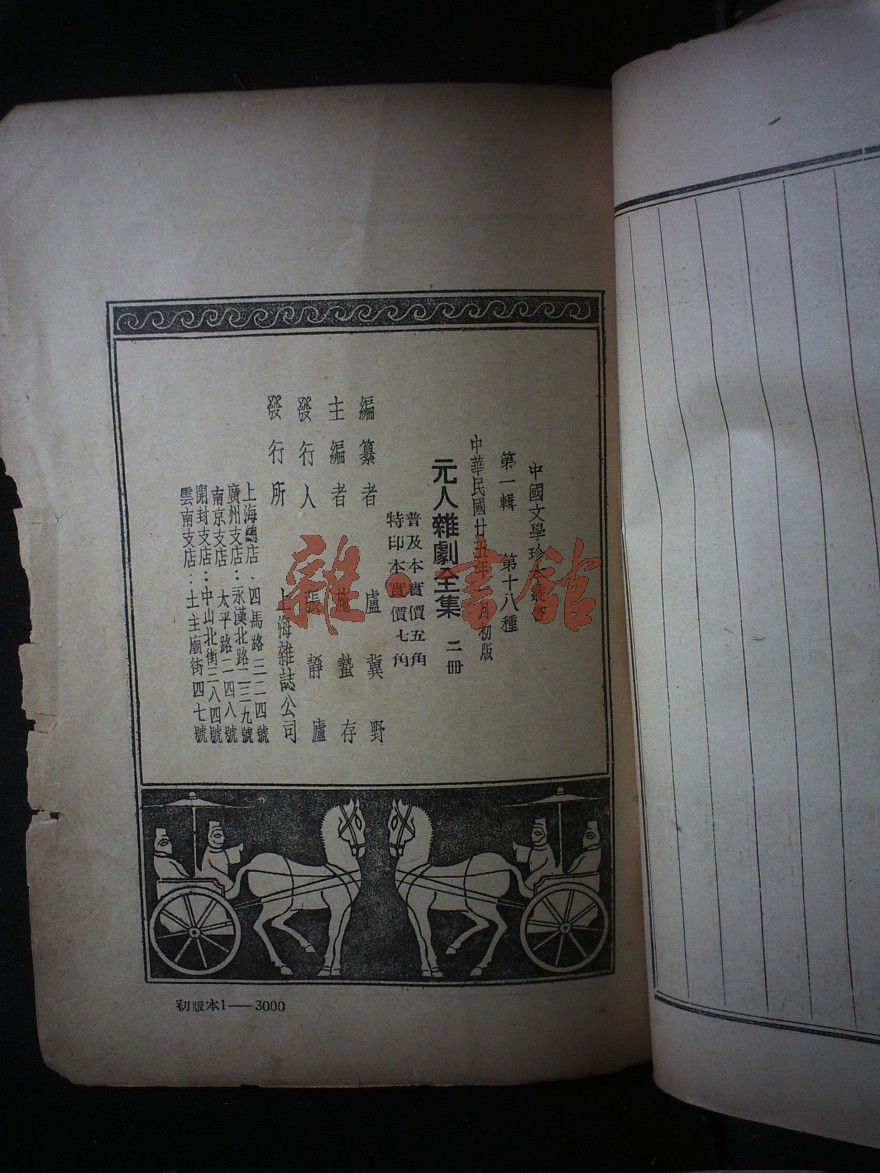 中國文學珍本叢書
第一輯 第十八種
中華民國廿五年 月初版
元人雜劇全集 二冊
普及本實價五角
特印本實價七角
編纂者 盧冀野
主編者 施蟄存
發行人 張靜廬
發行所 上海雜誌公司
上海總店．四馬路三二四號
廣州支店：永漢北路二三九號
南京支店 太平路二四八號
開封支店：中山北街三八四號
雲南支店：土主廟街四七號
初版本1——3000
雜·書館